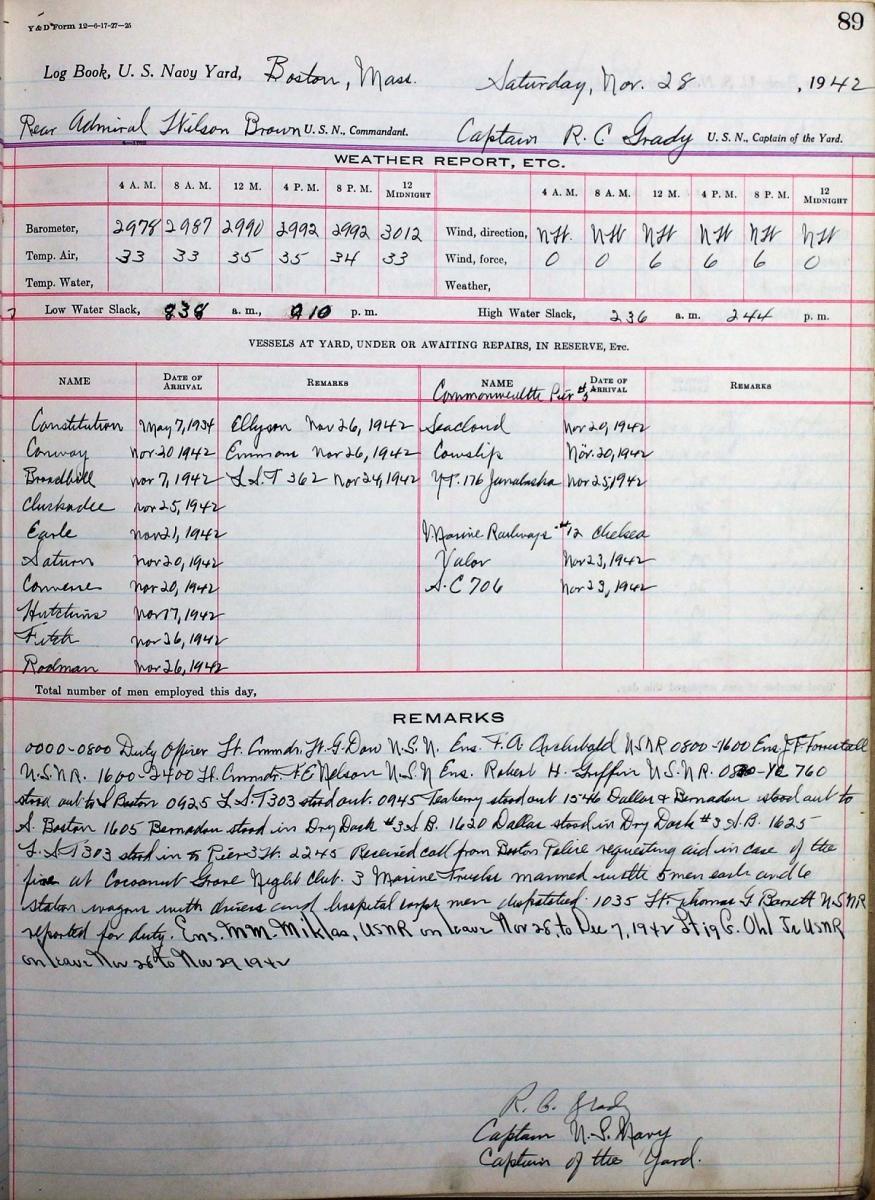 Y & D Form 12—6-17-27-25
89
Log Book, U. S. Navy Yard, Boston, Mass. Saturday, Nov. 28, 1942
Rear Admiral Wilson Brown U. S. N., Commandant. Captain R. C Grady U. S. N., Captain of the Yard.
WEATHER REPORT, ETC.
4 A. M. 8 A. M. 12 M. 4 P. M. 8 P. M. 12 MIDNIGHT 4 A. M. 8 A. M. 12 M. 4 P. M. 8 P. M. 12 MIDNIGHT
Barometer, 2978 2987 2990 2992 2992 3012 Wind, direction, NW NW NW NW NW NW
Temp. Air, 33 33 35 35 34 33 Wind, force, 0 0 6 6 6 0
Temp. Water, Weather,
Low Water Slack, 838 a. m., 910 p. m. High Water Slack, 236 a. m. 244 p. m.
VESSELS AT YARD, UNDER OR AWAITING REPAIRS, IN RESERVE, ETC.
NAME DATE OF ARRIVAL REMARKS NAME DATE OF ARRIVAL REMARKS
Commonwealth Pier #5
Constitution May 7, 1934 Ellyson Nov 26, 1942 Seacloud Nov 20, 1942
Conway Nov 20 1942 Emmons Nov 26, 1942 Cowslip Nov. 20, 1942
Broadbill Nov 7, 1942 L.S.T 362 Nov 24, 1942 YT. 176 Nov 25, 1942
Nov 25, 1942
Earle Nov 21, 1942 Marine Railways #12 Chelsea
Saturn Nov 20, 1942 Valor Nov 23, 1942
Converse Nov 20, 1942 S.C 706 Nov 23, 1942
Hutchins Nov 17, 1942
Fitch Nov 26, 1942
Rodman Nov 26, 1942
Total number of men employed this day,
REMARKS
0000-0800 Duty Officer Lt. Cmmdr. W. G. Dow U.S.N. Ens. F. A. Archibald USNR 0800-1600 Ens J. F. Forrestall
U.S.N.R. 1600-2400 Lt. Cmmdr. F E Nelson U.S.N Ens. Robert H. Griffin U.S.N.R. YC 760
stood out to S Boston 0925 L.S.T 303 stood out. 0945 Teaberry stood out 1546 Dallas & Bernadou stood out to
S. Boston 1605 Bernadou stood in Dry Dock #3 S.B. 1620 Dallas stood in Dry Dock #3 S.B. 1625
L.S.T 303 stood in to Pier 3 W. 2245 Received call from Boston Police requesting aid in case of the
fire at Cocoanut Grove Night Club. 3 Marine Trucks manned with 5 men each and 6
station wagons with drivers and hospital corps men dispatched. 1035 Lt. Thomas G Barrett U.S.N.R
reported for duty. Ens. M.M. Miklas, USNR on leave Nov 28, to Dec 7, 1942 Lt jg G. Ohl Jr USNR
on leave Nov 28 to Nov 29 1942
R. C. Grady
Captain U.S. Navy
Captain of the Yard.